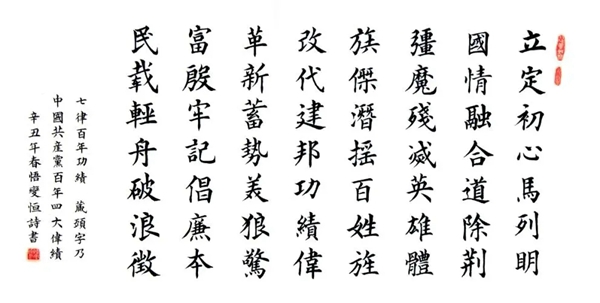 立定初心馬列明
國情融合道除荆
彊魔殘滅英雄體
族傑潛摇百姓旌
改代建邦功績偉
革新蓄勢美狼驚
富殷牢記倡廉本
民載輕舟破浪徵
七律百年功績 藏頭字乃
中國共産黨百年四大偉績
辛丑斗春悟變恒詩書